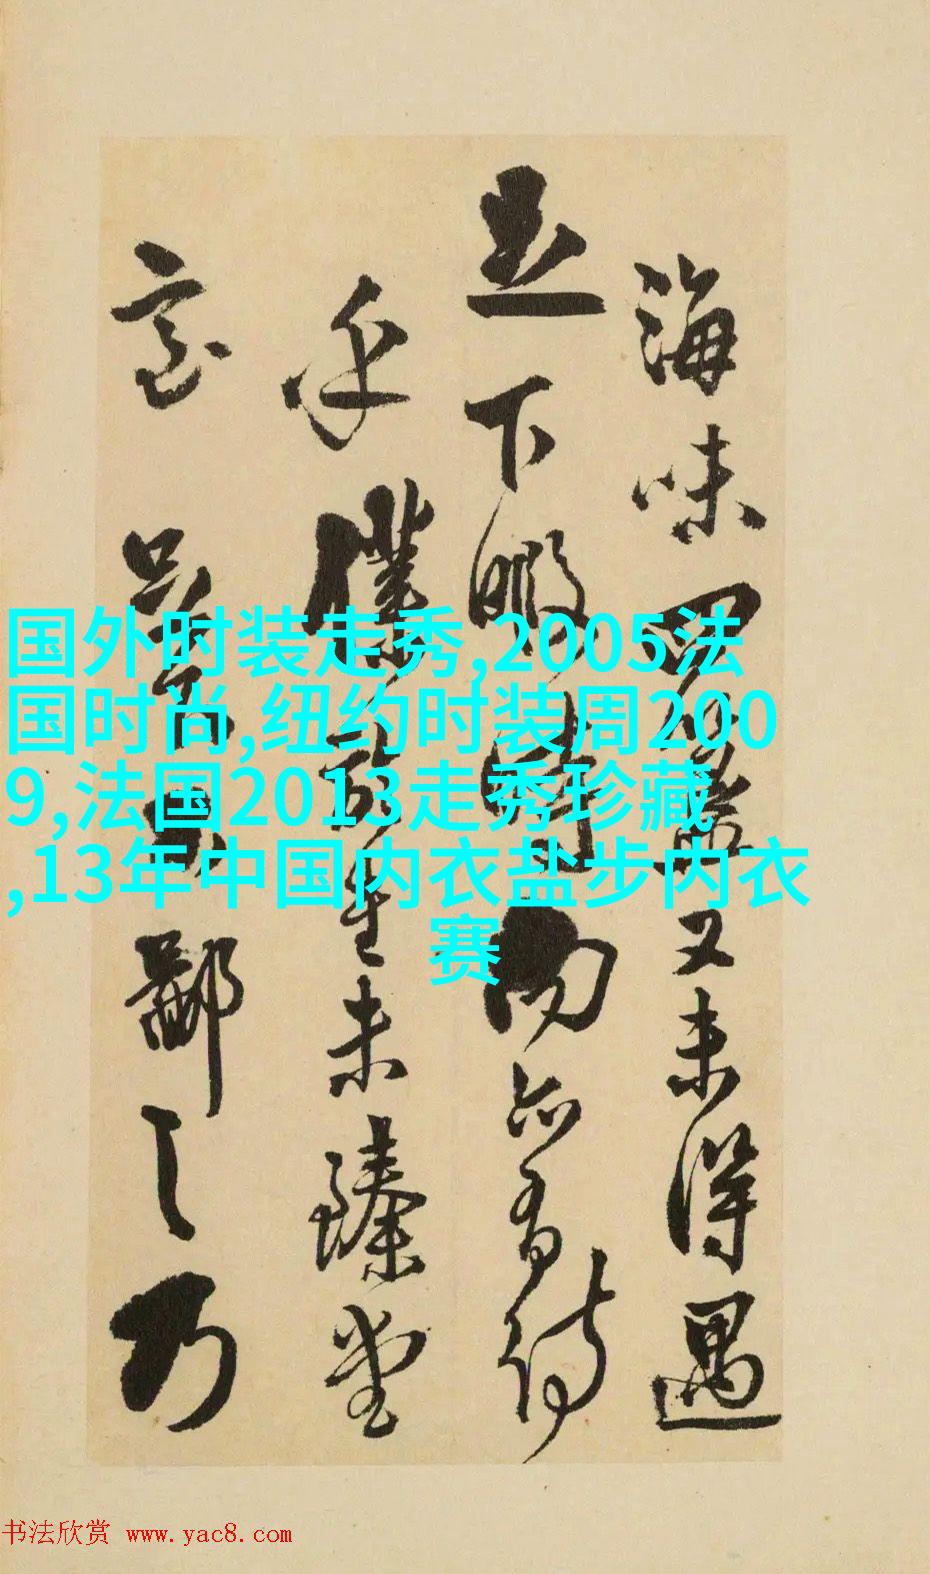 海味四又未得遇
足下暇時尚有待
乎僕生未臻堂
室鄙之乃
国外时装走秀,2005法
国时尚,纽约时装周200
9,法国2013走秀珍藏
,13年中国内衣盐步内衣
赛
书法欣赏 www.yac8.com